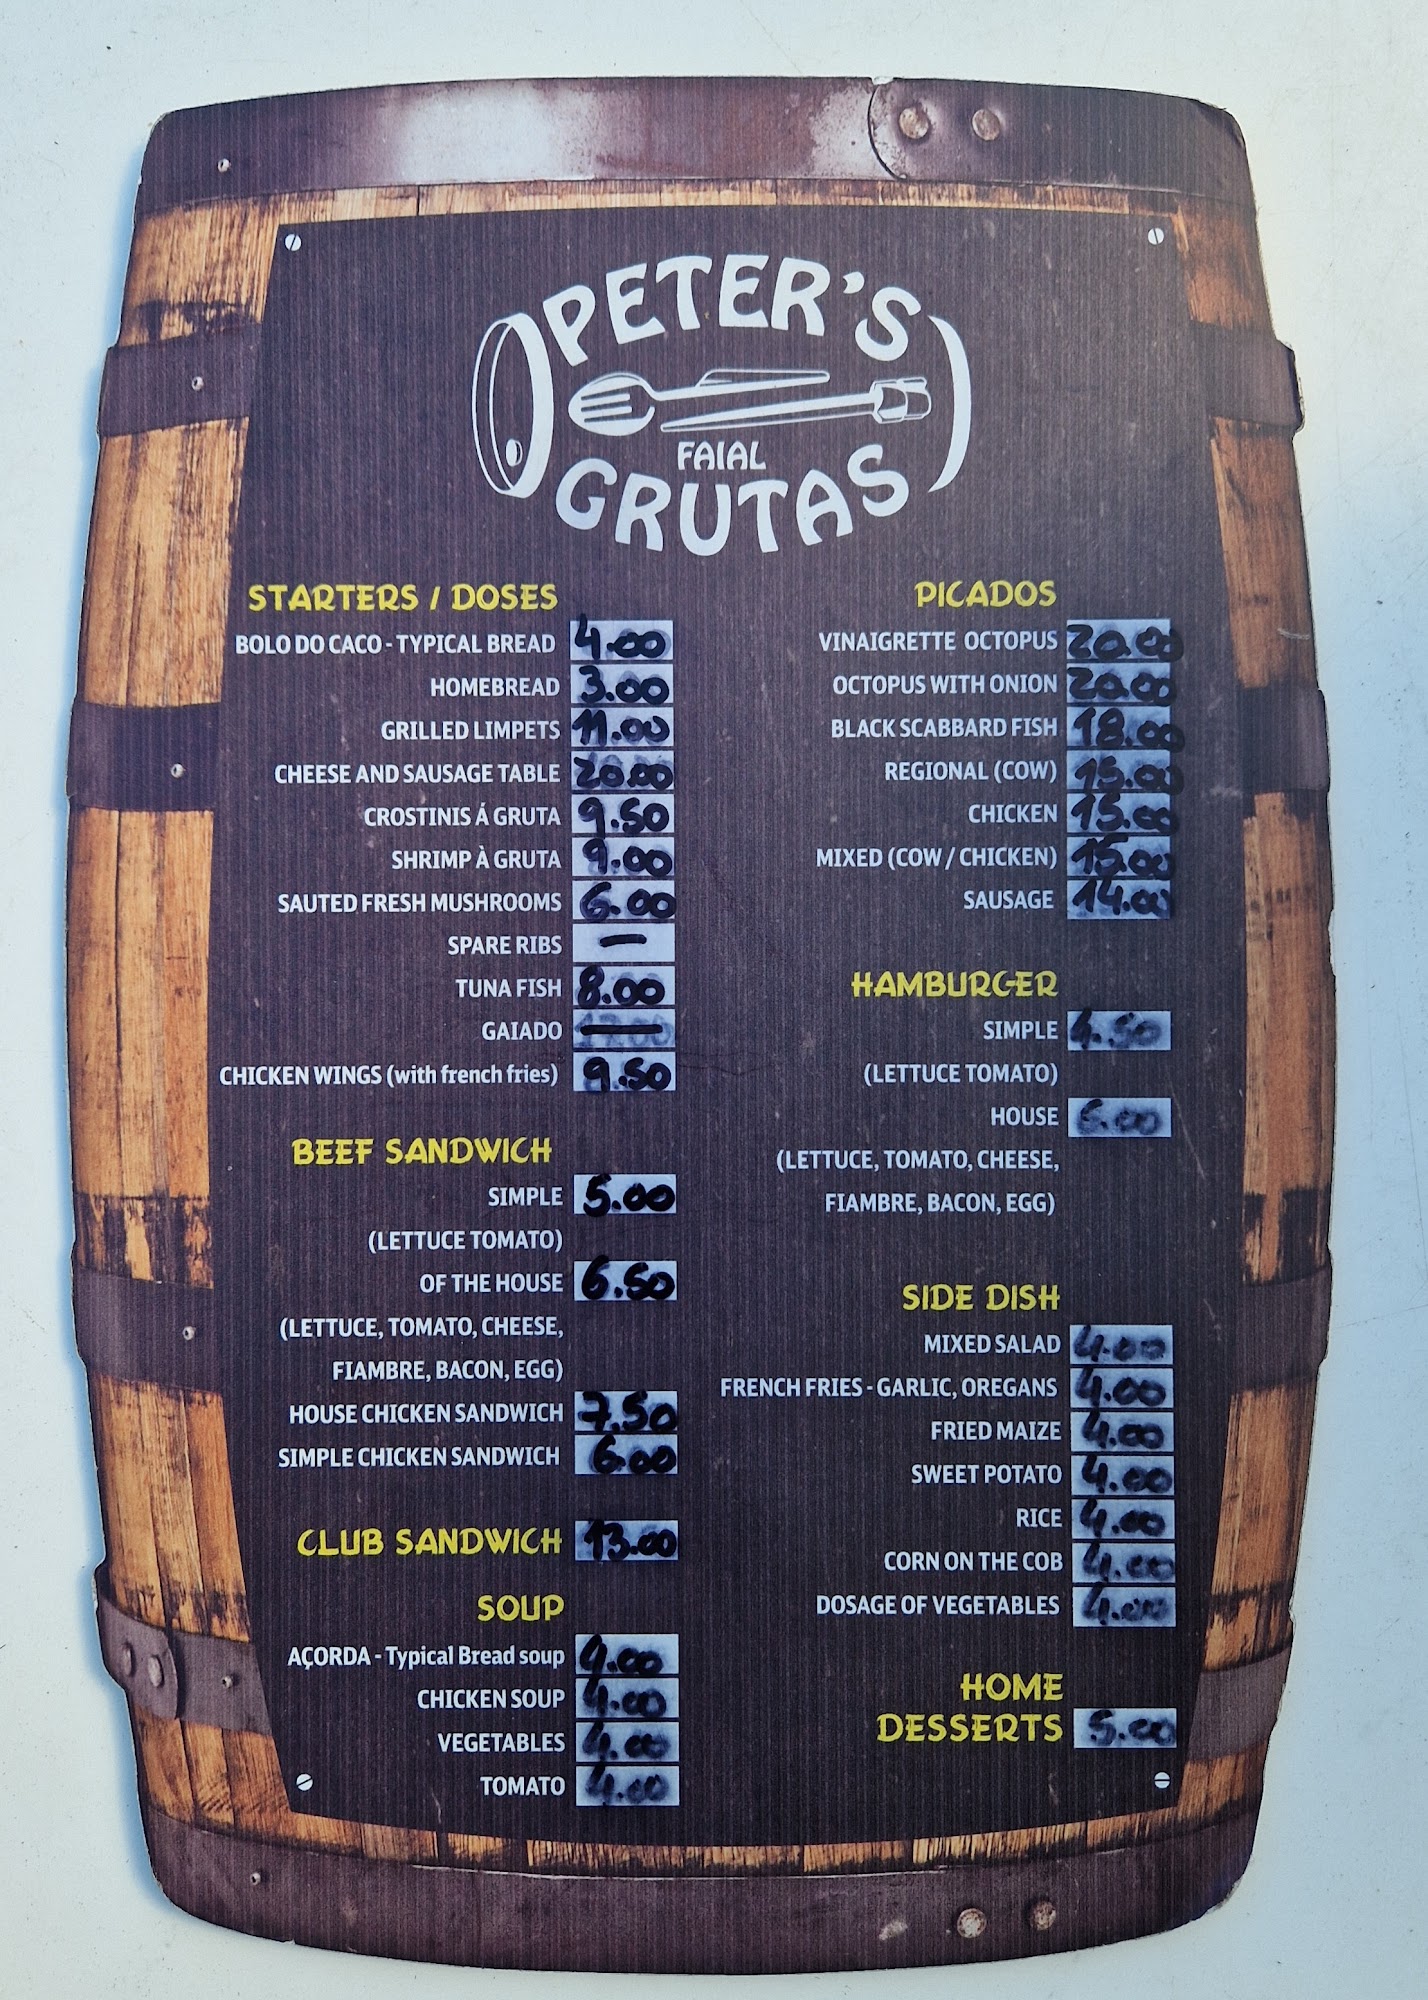 PETER'S
FAIAL
GRUTAS
STARTERS / DOSES
BOLO DO CACO - TYPICAL BREAD 4.00
HOMEBREAD 3.00
GRILLED LIMPETS 11.00
CHEESE AND SAUSAGE TABLE 20.00
CROSTINIS Á GRUTA 9.50
SHRIMP À GRUTA 9.00
SAUTED FRESH MUSHROOMS 6.00
SPARE RIBS —
TUNA FISH 8.00
GAIADO
CHICKEN WINGS (with french fries) 9.50
BEEF SANDWICH
SIMPLE 5.00
(LETTUCE TOMATO)
OF THE HOUSE 6.50
(LETTUCE, TOMATO, CHEESE,
FIAMBRE, BACON, EGG)
HOUSE CHICKEN SANDWICH 7.50
SIMPLE CHICKEN SANDWICH 6.00
CLUB SANDWICH 13.00
SOUP
AÇORDA - Typical Bread soup 9.00
CHICKEN SOUP 4.00
VEGETABLES 4.00
TOMATO 4.00
PICADOS
VINAIGRETTE OCTOPUS 20.00
OCTOPUS WITH ONION 20.00
BLACK SCABBARD FISH 18.00
REGIONAL (COW) 15.00
CHICKEN 15.00
MIXED (COW / CHICKEN) 15.00
SAUSAGE 14.00
HAMBURGER
SIMPLE 4.50
(LETTUCE TOMATO)
HOUSE 6.00
(LETTUCE, TOMATO, CHEESE,
FIAMBRE, BACON, EGG)
SIDE DISH
MIXED SALAD 4.00
FRENCH FRIES - GARLIC, OREGANS 4.00
FRIED MAIZE 4.00
SWEET POTATO 4.00
RICE 4.00
CORN ON THE COB 4.00
DOSAGE OF VEGETABLES 4.00
HOME
DESSERTS 5.00